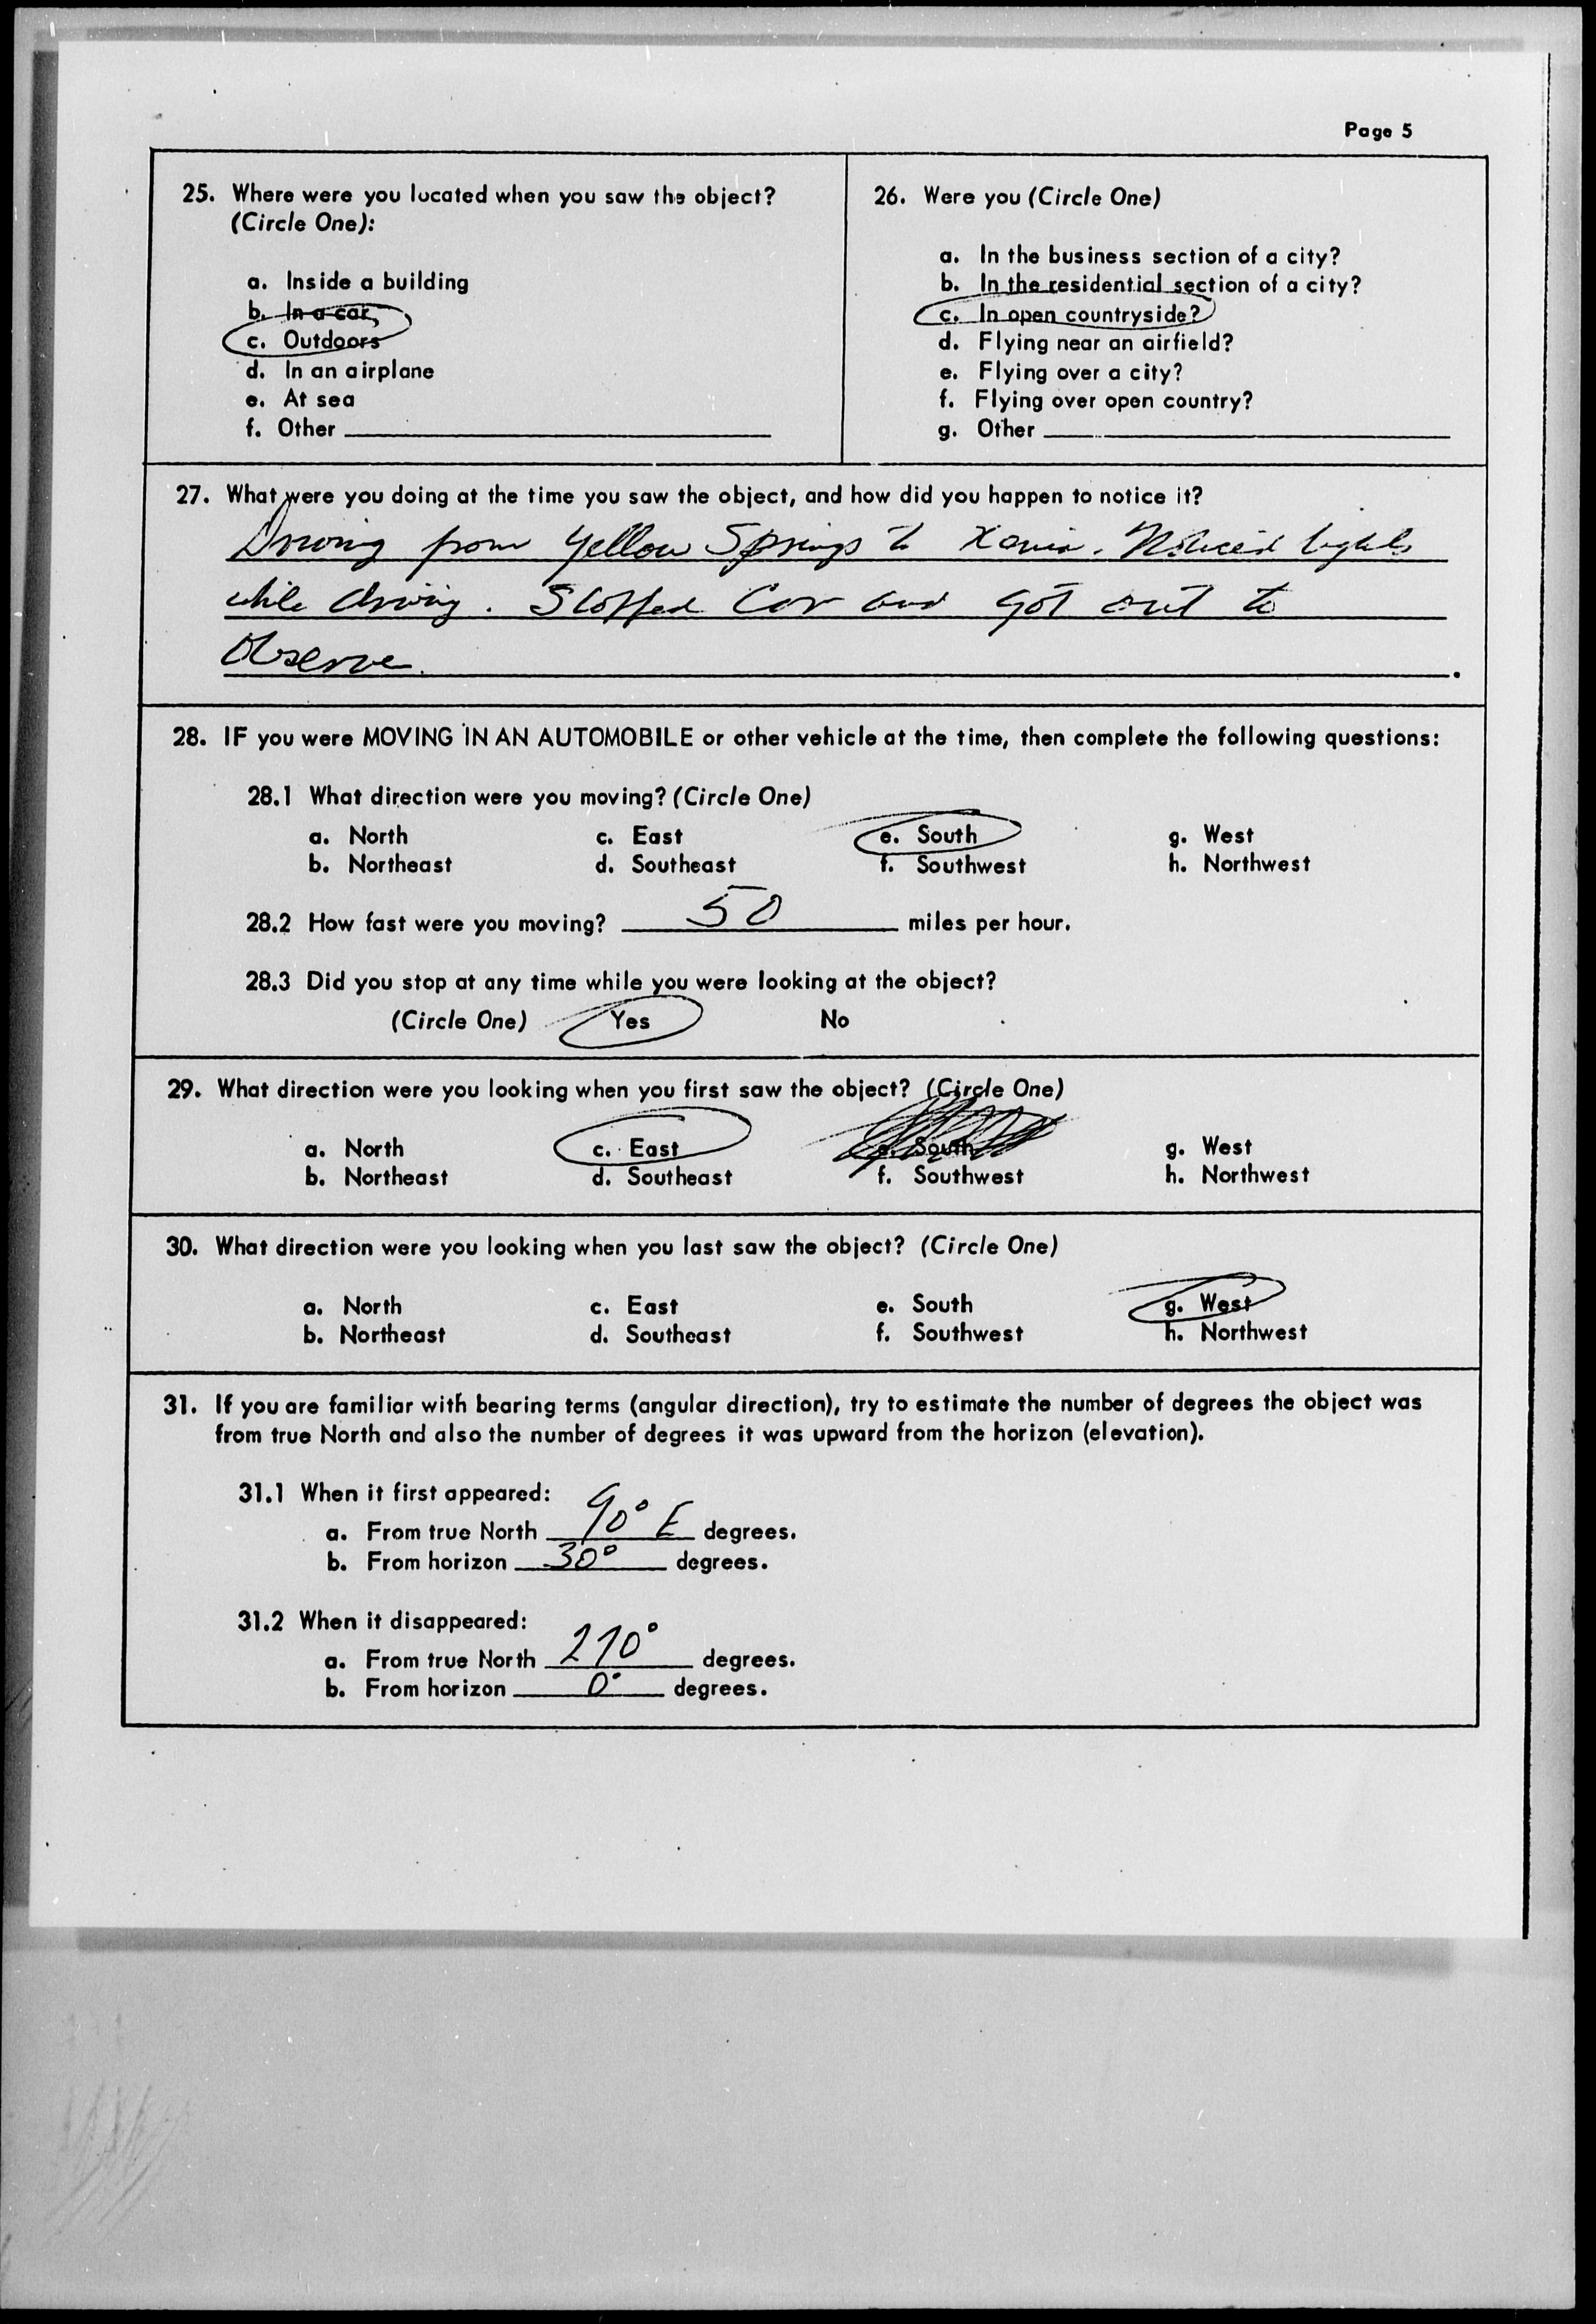 Page 5
25. Where were you located when you saw the object?
(Circle One):
a. Inside a building
b. In a car
c. Outdoors
d. In an airplane
e. At sea
f. Other
26. Were you (Circle One)
a. In the business section of a city?
b. In the residential section of a city?
c. In open countryside?
d. Flying near an airfield?
e. Flying over a city?
f. Flying over open country?
g. Other
27. What were you doing at the time you saw the object, and how did you happen to notice it?
Driving from Yellow Springs to Xenia. Noticed lights
while driving. Stopped Car and got out to
Observe.
28. IF you were MOVING IN AN AUTOMOBILE or other vehicle at the time, then complete the following questions:
28.1 What direction were you moving? (Circle One)
a. North c. East e. South g. West
b. Northeast d. Southeast f. Southwest h. Northwest
28.2 How fast were you moving? 50 miles per hour.
28.3 Did you stop at any time while you were looking at the object?
(Circle One) Yes No
29. What direction were you looking when you first saw the object? (Circle One)
a. North c. East e. South g. West
b. Northeast d. Southeast f. Southwest h. Northwest
30. What direction were you looking when you last saw the object? (Circle One)
a. North c. East e. South g. West
b. Northeast d. Southeast f. Southwest h. Northwest
31. If you are familiar with bearing terms (angular direction), try to estimate the number of degrees the object was
from true North and also the number of degrees it was upward from the horizon (elevation).
31.1 When it first appeared:
a. From true North 90° E degrees.
b. From horizon 30° degrees.
31.2 When it disappeared:
a. From true North 270° degrees.
b. From horizon 0° degrees.